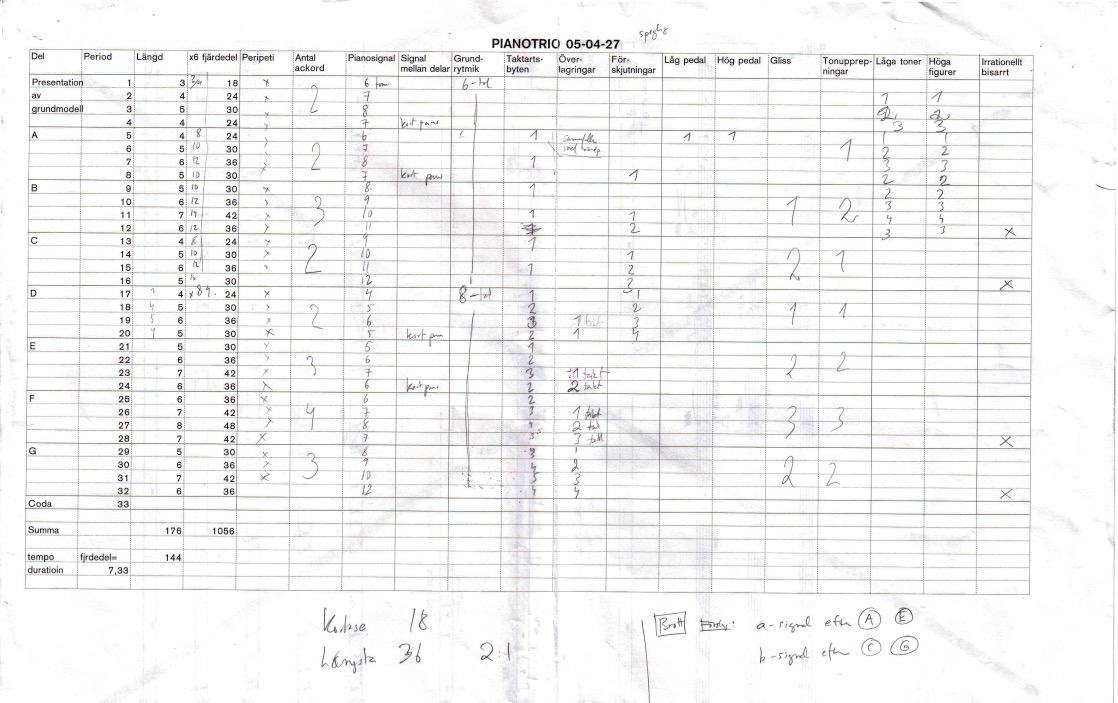 PIANOTRIO 05-04-27
Del Period Längd x6 fjärdedel Peripeti Antal ackord Pianosignal Signal mellan delar Grund-rytmik Taktarts-byten Över-lagringar För-skjutningar Låg pedal Hög pedal Gliss Tonupprep-ningar Låga toner Höga figurer Irrationellt bisarrt
Presentation 1 3 18 x 6 ton 6-tol
av 2 4 24 x 2 7 1 1
grundmodell 3 5 30 8 2 2
4 4 24 x 7 kort paus 3 3
A 5 4 8 24 6 1 1 1 1 1
6 5 10 30 2 7 1 2 2
7 6 12 36 8 1 3 3
8 5 10 30 7 kort paus 1 2 2
B 9 5 10 30 x 8 1 2 2
10 6 12 36 3 9 1 2 3 3
11 7 14 42 10 1 1 4 4
12 6 12 36 11 2 3 3 x
C 13 4 8 24 9 1
14 5 10 30 2 10 1 2 1
15 6 12 36 11 1 2
16 5 30 12 3 x
D 17 4 24 x 4 8-tol 1 1
18 5 30 2 5 2 2 1 1
19 6 36 6 3 1 takt 3
20 5 30 x 5 kort paus 2 1 4
E 21 5 30 5 1
22 6 36 3 6 2 2 2
23 7 42 7 3 1 takt
24 6 36 6 kort paus 2 2 takt
F 25 6 36 x 6 2
26 7 42 x 4 7 3 1 takt 3 3
27 8 48 8 4 2 takt
28 7 42 x 7 3 takt x
G 29 5 30 x 8 3 1
30 6 36 3 9 4 2 2 2
31 7 42 x 10 5 3
32 6 36 12 4 4 x
Coda 33
Summa 176 1056
tempo fjrdedel= 144
duratioin 7,33
Kortase 18
Längsta 36 2:1
Brott a-signal efter A E
b-signal efter C G